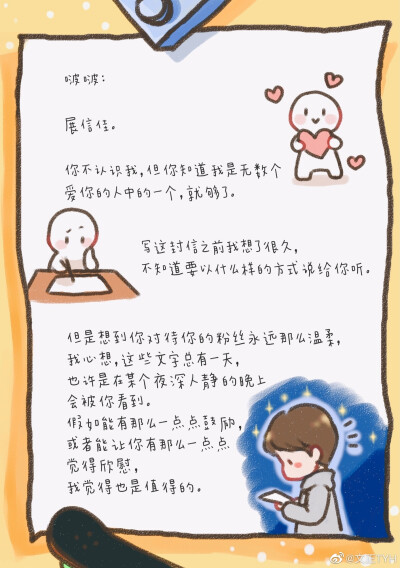 啵啵：
展信佳。
你不认识我，但你知道我是无数个
爱你的人中的一个，就够了。
写这封信之前我想了很久，
不知道要以什么样的方式说给你听。
但是想到你对待你的粉丝永远那么温柔，
我心想，这些文字总有一天，
也许是在某个夜深人静的晚上
会被你看到。
假如能有那么一点点鼓励，
或者能让你有那么一点点
觉得欣慰，
我觉得也是值得的。